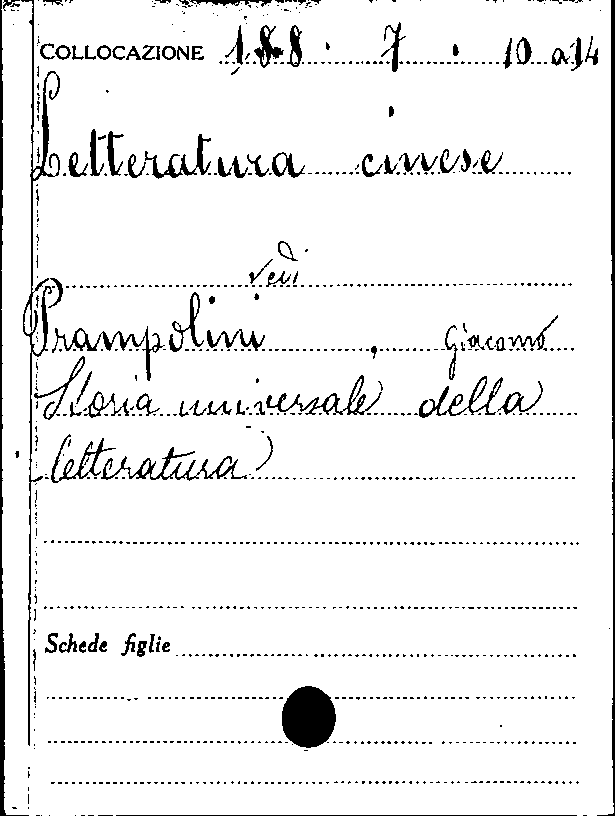 COLLOCAZIONE 188 . 7 . 10 a 14
Letteratura cinese
vedi
Prampolini, Giacomo
Storia universale della
letteratura
Schede figlie